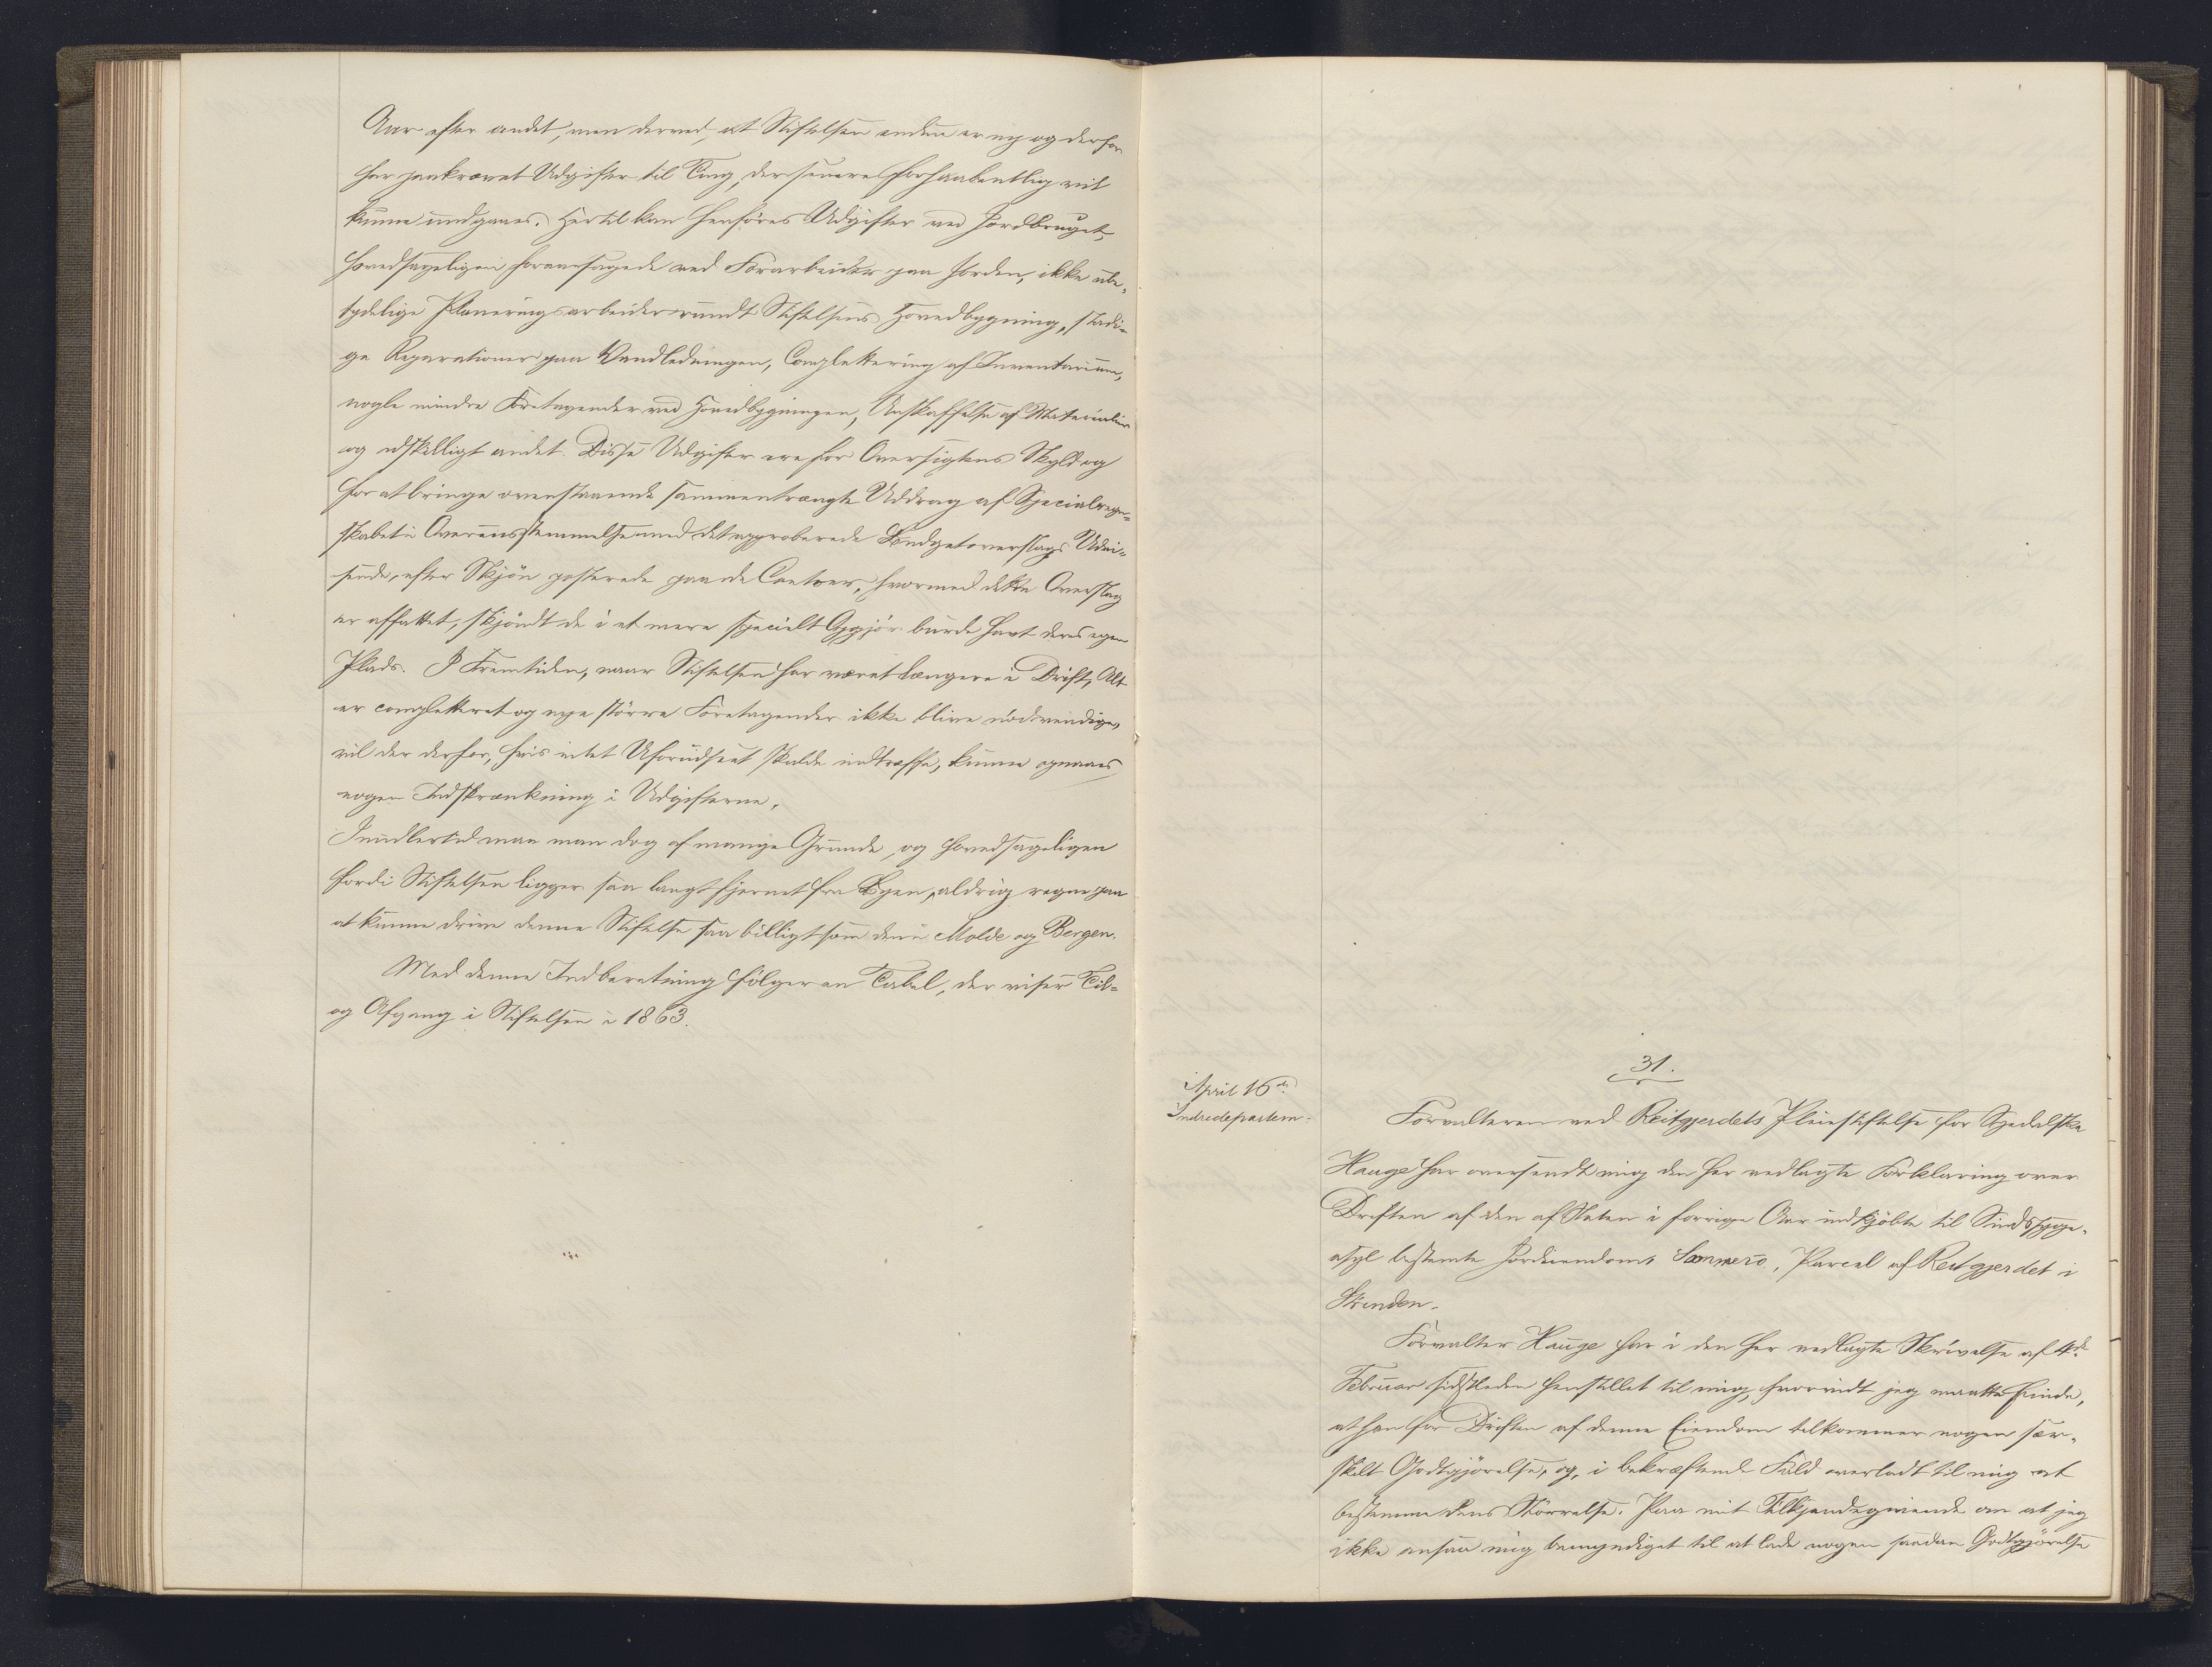 Aar efter andet, men derved, at Stiftelsen endnu er ny og derfor
har paakrævet Udgifter til Ting, der senere forhaabentlig vil
kunne undgaaes. Hertil kan henføres Udgifter ved Jordbruget,
hovedsageligen foraarsagede ved Forarbeider paa Jorden, ikke ube-
tydelige Planeringsarbeider rundt Stiftelsens Hovedbygning, stadi-
ge Reparationer paa Vandledningen, Complettering af Inventarium,
nogle mindre Foretagender ved Hovedbygningen, Anskaffelse af Materialier
og adskilligt andet. Disse Udgifter ere for Oversigtens Skyld og
for at bringe ovenstaaende sammentrængte Uddrag af Specialregn-
skabet i Overensstemmelse med det approberede Budgetoverslags Udvi-
sende, efter Skjøn posterede paa de Contoer, hvormed dette Overslag
er affattet, skjøndt de i et mere specielt Opgjør burde havt deres egen
Plads. I Fremtiden, naar Stiftelsen har været længere i Drift, Alt
er completteret og nye større Foretagender ikke blive nødvendige,
vil der derfor, hvis intet Uforudseet skulde indtræffe, kunne opnaaes
nogen Indskrænkning i Udgifterne.
Imidlertid maa man dog af mange Grunde, og hovedsageligen
fordi Stiftelsen ligger saa langt fjernet fra Byen, aldrig regne paa
at kunne drive denne Stiftelse saa billigt som dem i Molde og Bergen.
Med denne Indberetning følger en Tabel, der viser Til-
og Afgang i Stiftelsen i 1863.
31.
April 16de
Indredepartem.
Forvalteren ved Reitgjerdets Pleiestiftelse for Spedalske
Hauge har oversendt mig den her vedlagte Forklaring over
Driften af den af Staten i forrige Aar indkjøbte til Sindssyge-
asyl bestemte Jordeiendom, Sommero, Parcel af Reitgjerdet i
Strinden.
Forvalter Hauge har i den her vedlagte Skrivelse af 4de
Februar sidstleden henstillet til mig, hvorvidt jeg maatte finde,
at han for Driften af denne Eiendom tilkommer nogen sær-
skilt Godtgjørelse, og, i bekræftende Fald overladt til mig at
bestemme dens Størrelse. Paa mit Tilkjendegivende om at jeg
ikke ansaa mig bemyndiget til at lade nogen saadan Godtgjørelse